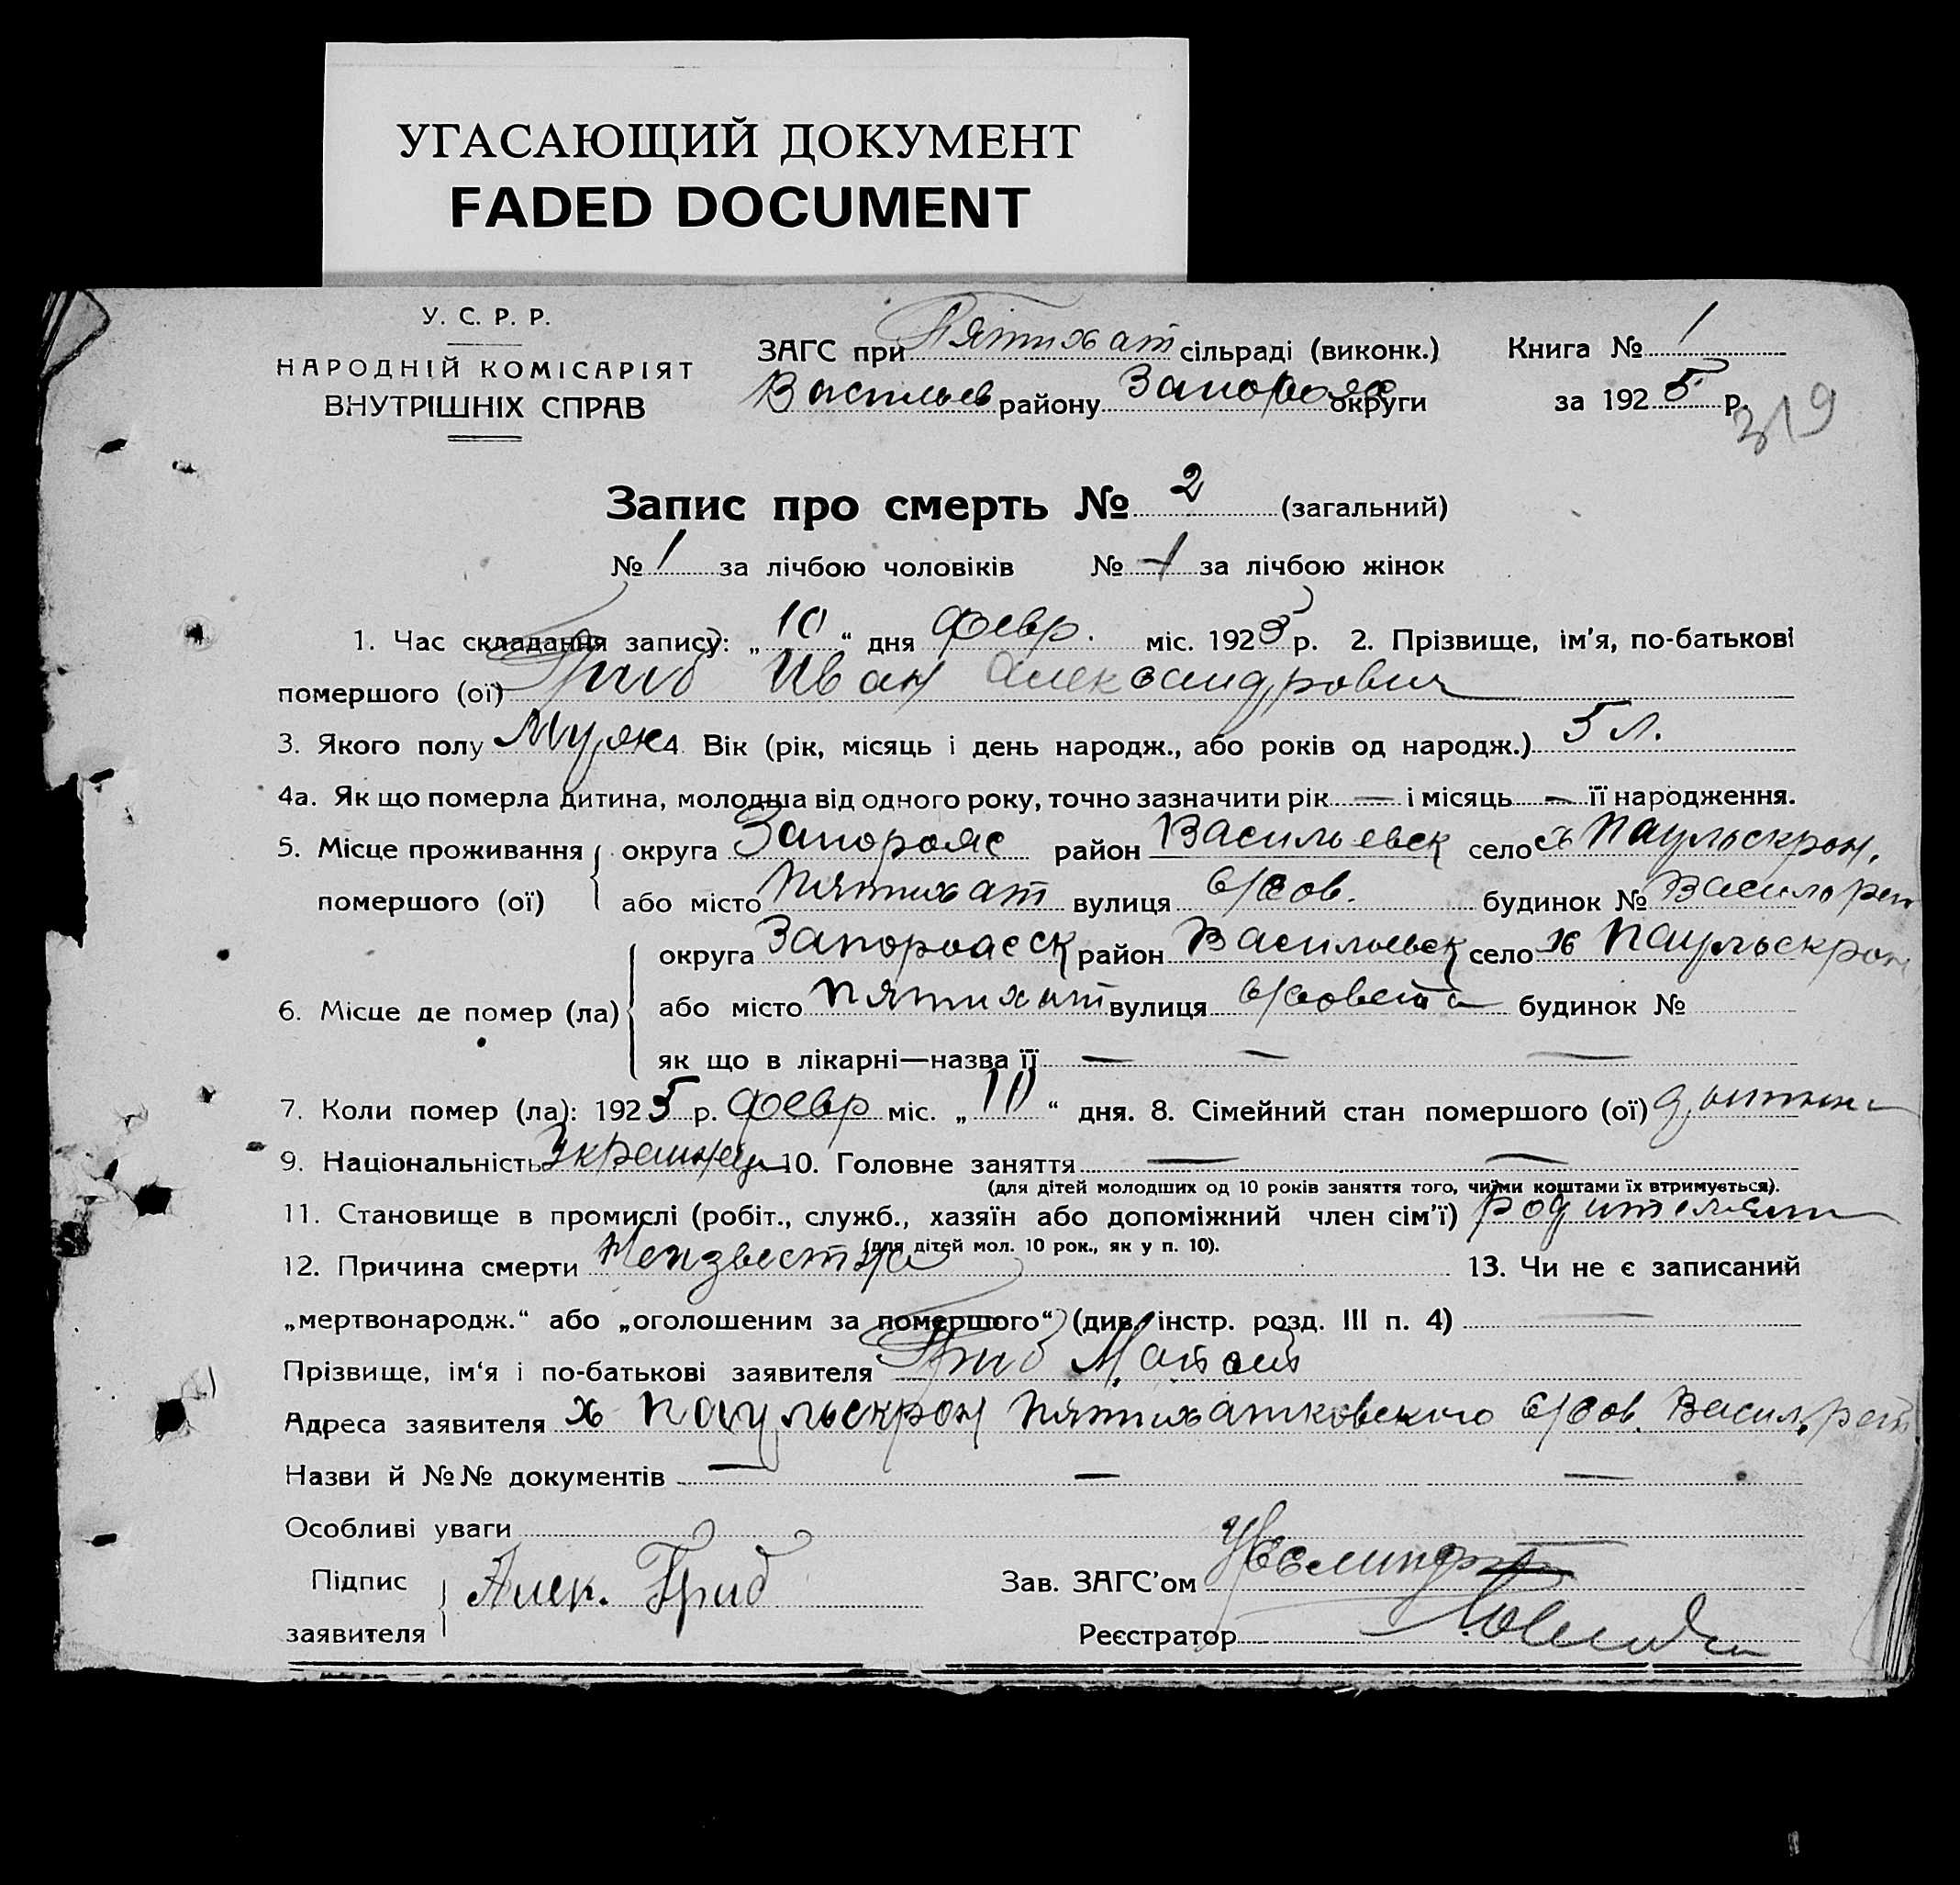 УГАСАЮЩИЙ ДОКУМЕНТ
FADED DOCUMENT
У. С. Р. Р.
НАРОДНІЙ КОМІСАРІЯТ
ВНУТРІШНІХ СПРАВ
ЗАГС при Пятихат сільраді (виконк.) Книга № 1
Васильев району Запорож округи за 1925 р.
319
Запис про смерть № 2 (загальний)
№ 1 за лічбою чоловіків № за лічбою жінок
1. Час складання запису: „10“ дня февр. міс. 1925 р. 2. Прізвище, ім’я, по-батькові
помершого (ої) Гриб Иван Александрович
3. Якого полу Муж 4. Вік (рік, місяць і день народж., або років од народж.) 5 л.
4а. Як що померла дитина, молодша від одного року, точно зазначити рік — і місяць — її народження.
5. Місце проживання округа Запорожс район Васильевск село х Паульскрон.
помершого (ої) або місто Пятихат вулиця с/сов. будинок №
округа Запорожск район Васильевск село х Паульскрон
6. Місце де помер (ла) або місто Пятихат вулиця с/совета будинок №
як що в лікарні—назва її — — —
7. Коли помер (ла): 1925 р. февр міс. „10“ дня. 8. Сімейний стан помершого (ої)
9. Національність Украинец 10. Головне заняття — —
(для дітей молодших од 10 років заняття того, чиїми коштами їх втримується).
11. Становище в промислі (робіт., служб., хазяїн або допоміжний член сім’ї) родителями
(для дітей мол. 10 рок., як у п. 10).
12. Причина смерти Неизвестна 13. Чи не є записаний
„мертвонародж.“ або „оголошеним за помершого“ (див. інстр. розд. III п. 4) —
Прізвище, ім‘я і по-батькові заявителя Гриб
Адреса заявителя х Паульскрон Пятихатковского с/сов. Васил.
Назви й №№ документів — — —
Особливі уваги
Підпис
заявителя Алек. Гриб
Зав. ЗАГС’ом
Реєстратор